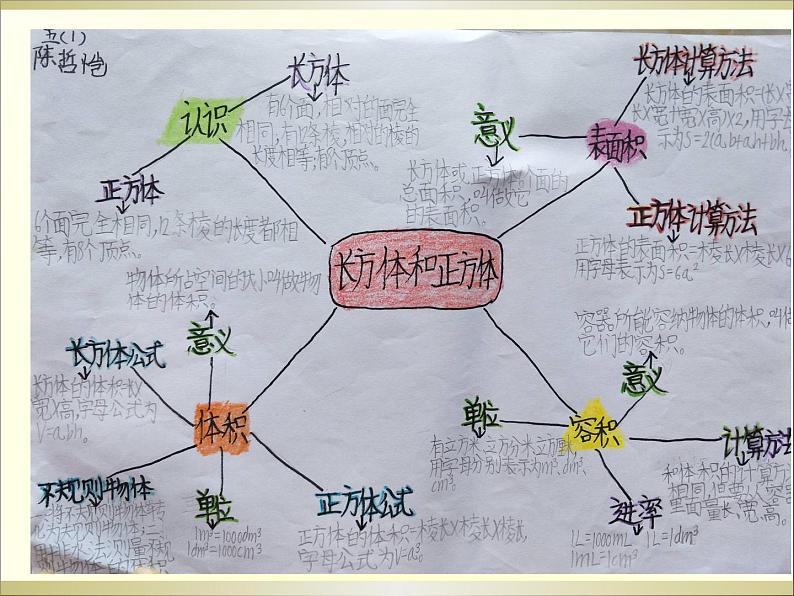 五(1)
陈哲恺
长方体
有6个面,相对的面完全
相同,有12条棱,相对的棱的
长度相等,有8个顶点。
认识
正方体
6个面完全相同,12条棱的长度都相
等,有8个顶点。
长方体计算方法
长方体的表面积=(长X宽
长X宽+宽X高)X2,用字母
示为S=2(ab+ah+bh
意义
表面积
长方体或正方体6个面的
总面积,叫做它
的表面积。
正方体计算方法
正方体的表面积=棱长X棱长X6
用字母表示为S=6a²
长方体和正方体
物体所占空间的大小叫做物
体的体积。
意义
长方体公式
长方体的体积=长X
宽X高,字母公式为
V=abh。
体积
不规则物体
将不规则物体转
单位
1m³=1000dm³
1dm³=1000cm³
正方体公式
正方体的体积=棱长X棱长X棱长,
字母公式为V=a³。
容器所能容纳物体的体积,叫做
它们的容积。
意义
单位
容积
有立方米,立方分米,立方厘米,
用字母分别表示为m³,dm³,
cm³。
计算方法
和体积的计算方
相同,但要从容器
里面量长、宽、高。
进率
1L=1000mL 1L=1dm³
1mL=1cm³